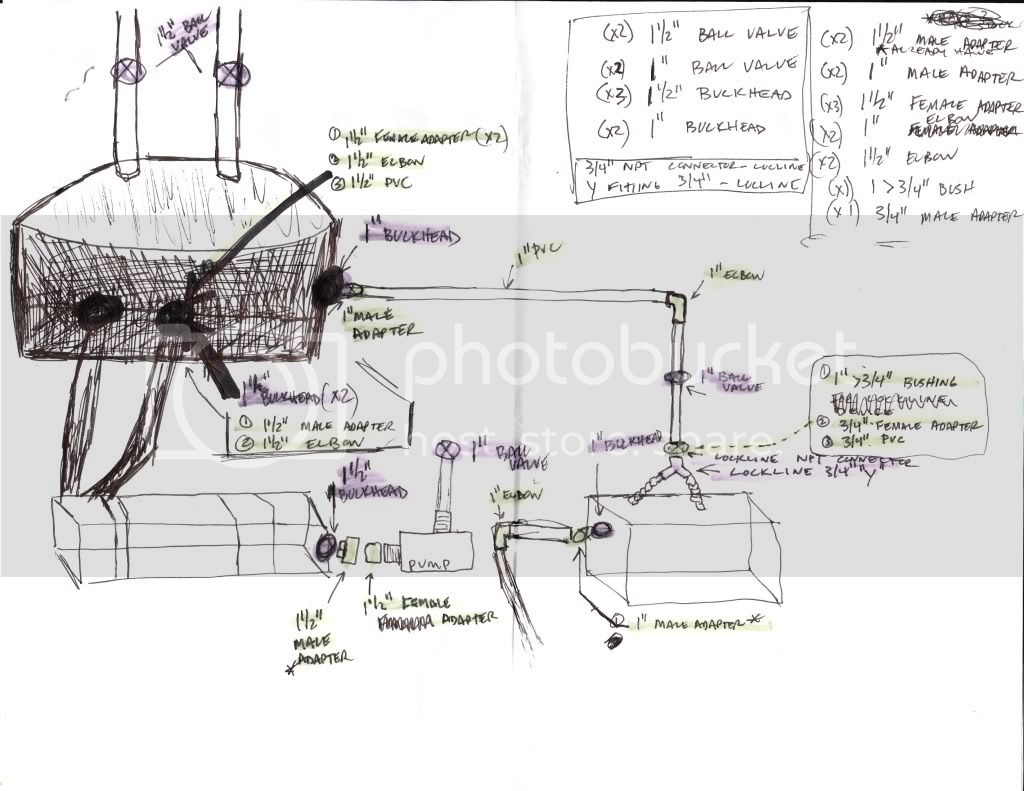 1½" BALL
VALVE
① 1½" FEMALE ADAPTER (x2)
② 1½" ELBOW
③ 1½" PVC
(x2) 1½" BALL VALVE
(x2) 1" BALL VALVE
(x3) 1½" BUCKHEAD
(x2) 1" BUCKHEAD
3/4" NPT CONNECTOR - LOCLINE
Y FITTING 3/4" - LOCLINE
(x2) 1½" MALE ADAPTER
* ALREADY HAVE
(x2) 1" MALE ADAPTER
(x3) 1½" FEMALE ADAPTER
(x2) 1" ELBOW
(x2) 1½" ELBOW
(x) 1 > 3/4" BUSH
(x1) 3/4" MALE ADAPTER
1" BUCKHEAD
1" PVC
1" ELBOW
1" MALE
ADAPTER
1" BALL
VALVE
① 1" > 3/4" BUSHING
② 3/4" FEMALE ADAPTER
③ 3/4" PVC
1½"
BUCKHEAD (x2)
① 1½" MALE ADAPTER
② 1½" ELBOW
1" BUCKHEAD
LOCKLINE NPT CONNECTER
LOCKLINE 3/4" "Y"
1"
BALL
VALVE
1½"
BUCKHEAD
1" ELBOW
PUMP
1½" FEMALE
ADAPTER
1½"
MALE
*ADAPTER
① 1" MALE ADAPTER *
photobucket
host. store. share.